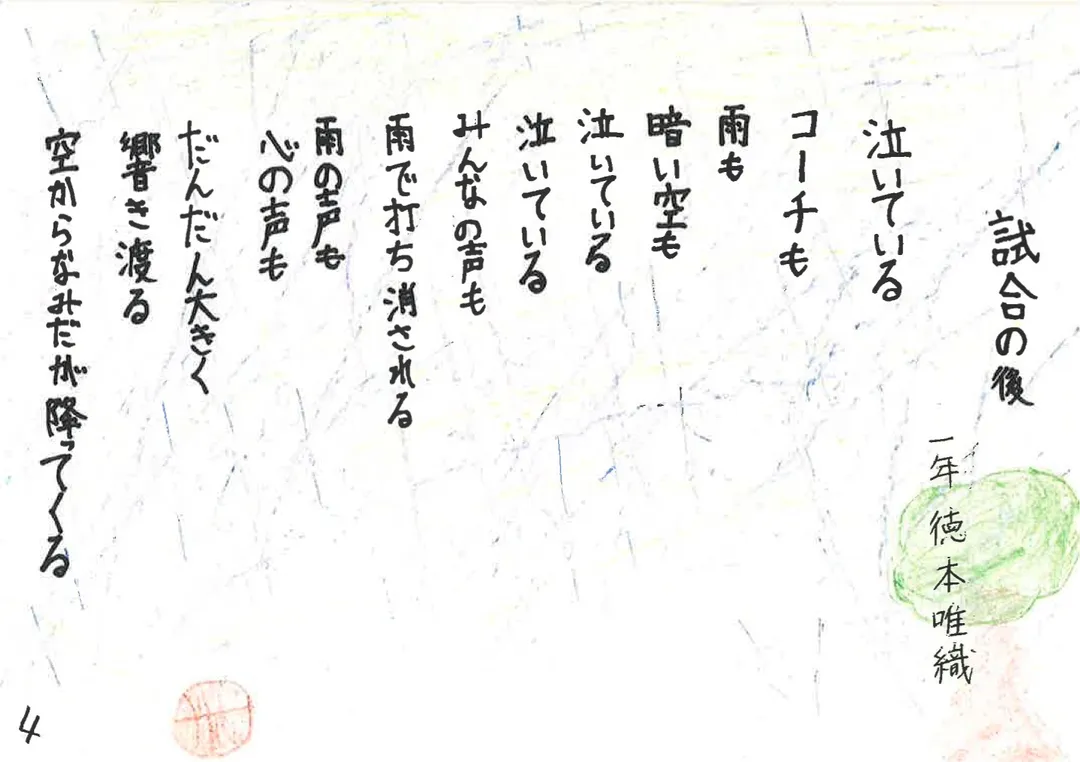 試合の後
一年 徳本唯織
泣いている
コーチも
雨も
暗い空も
泣いている
泣いている
みんなの声も
雨で打ち消される
雨の声も
心の声も
だんだん大きく
響き渡る
空からなみだが降ってくる
4